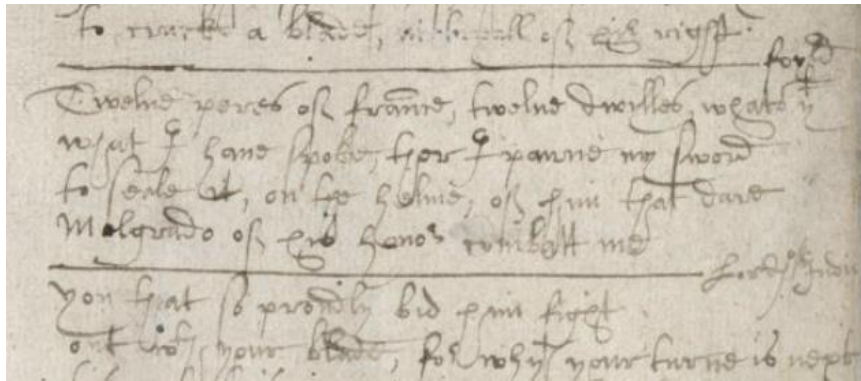 to cracke a blade, in tryall of his right.
Twelue peres of france, twelue divilles, whats yt
what I haue spoke, ther I pawne my sword
to seale it, on the helme, of him that dare
Malgrado of his honor combatt me
You that so proudly bid him fight
out wth your blade, for why your turne is next